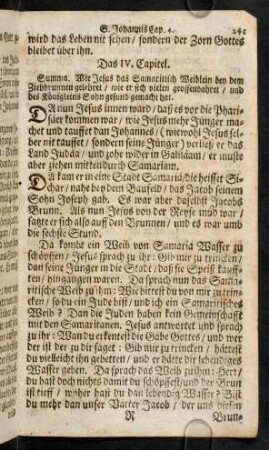 S. Johannis Cap. 4. 241
wird das Leben nit sehen / sondern der Zorn Gottes
bleibet über ihn.
Das IV. Capitel.
Summa. Wie Jesus das Samaritisch Weiblein bey dem
Ziehbrunnen gelehret / wie er sich vielen geoffenbahret / und
des Königleins Sohn gesund gemacht hat.
DA nun Jesus innen ward / daß es vor die Phari-
säer kommen war / wie Jesus mehr Jünger ma-
chet und tauffet dan Johannes / (wiewohl Jesus sel-
ber nit tauffet / sondern seine Jünger) verließ er das
Land Judäa / und zohe wider in Galiläam / er muste
aber ziehen mitten durch Samariam.
DA kam er in eine Stadt Samariä / die heisset Si-
char / nahe bey dem Baufeld / das Jacob seinem
Sohn Joseph gab. Es war aber daselbst Jacobs
Brunn. Als nun Jesus von der Reyse müd war /
satzte er sich also auff den Brunnen / und es war umb
die sechste Stund.
Da kombt ein Weib von Samaria Wasser zu
schöpffen / Jesus sprach zu ihr: Gib mir zu trincken /
dan seine Jünger in die Stadt / daß sie Speiß kauff-
ten / hingangen waren. Da sprach nun das Sama-
ritische Weib zu ihm: Wie bittest du von mir zu trin-
cken / so du ein Jude bist / und ich ein Samaritisches
Weib? Dan die Juden haben kein Gemeinschafft
mit den Samaritanen. Jesus antwortet und sprach
zu ihr: Wan du erkentest die Gabe Gottes / und wer
der ist der zu dir saget: Gib mir zu trincken / hättest
du vielleicht ihn gebetten / und er hätte dir lebendiges
Wasser geben. Da sprach das Weib zu ihm: Herr /
du hast doch nichts damit du schöpffest / und der Brun
ist tieff / woher hast du dan lebendig Wasser? Bist
du mehr dan unser Vatter Jacob / der uns diesen
R Brun-